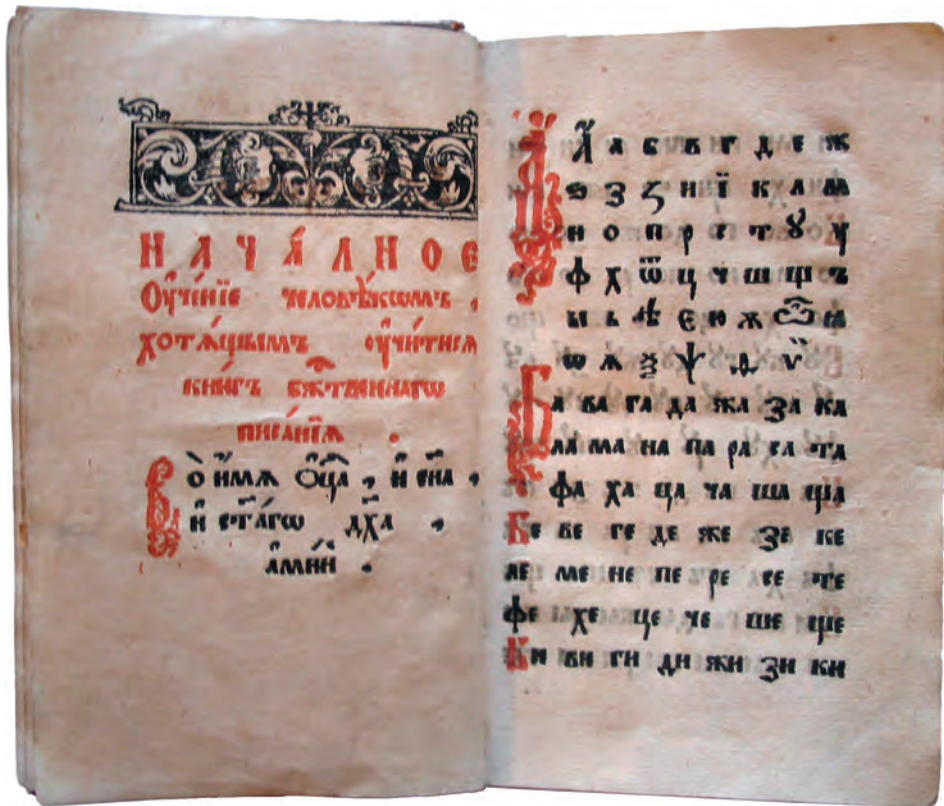 НАЧА́ЛНОЕ
Оу҆че́нїе человѣ́кѡмъ ,
хотѧ́щымъ оу҆чи́тисѧ
кни́гъ бж҃ественнагѡ
писа́нїѧ .
Во и҆́мѧ Ѻ҆ц҃а̀ , и҆ сн҃а ,
и҆ ст҃а́гѡ дх҃а ,
а҆ми́нь .
А҆ а б в г д е ж
ѕ з ꙁ и ї к л м
н о п р с т ꙋ у
ф х ѿ ц ч ш щ ъ
ы ь ѣ є ю ѫ
ѡ ѧ ѯ ѱ ѵ
Ба ва га да жа за ка
ла ма на па ра са та
фа ха ца ча ша ща
Бе ве ге де же зе ке
ле ме не пе ре се те
фе хе це че ше ще
Би ви ги ди жи зи ки